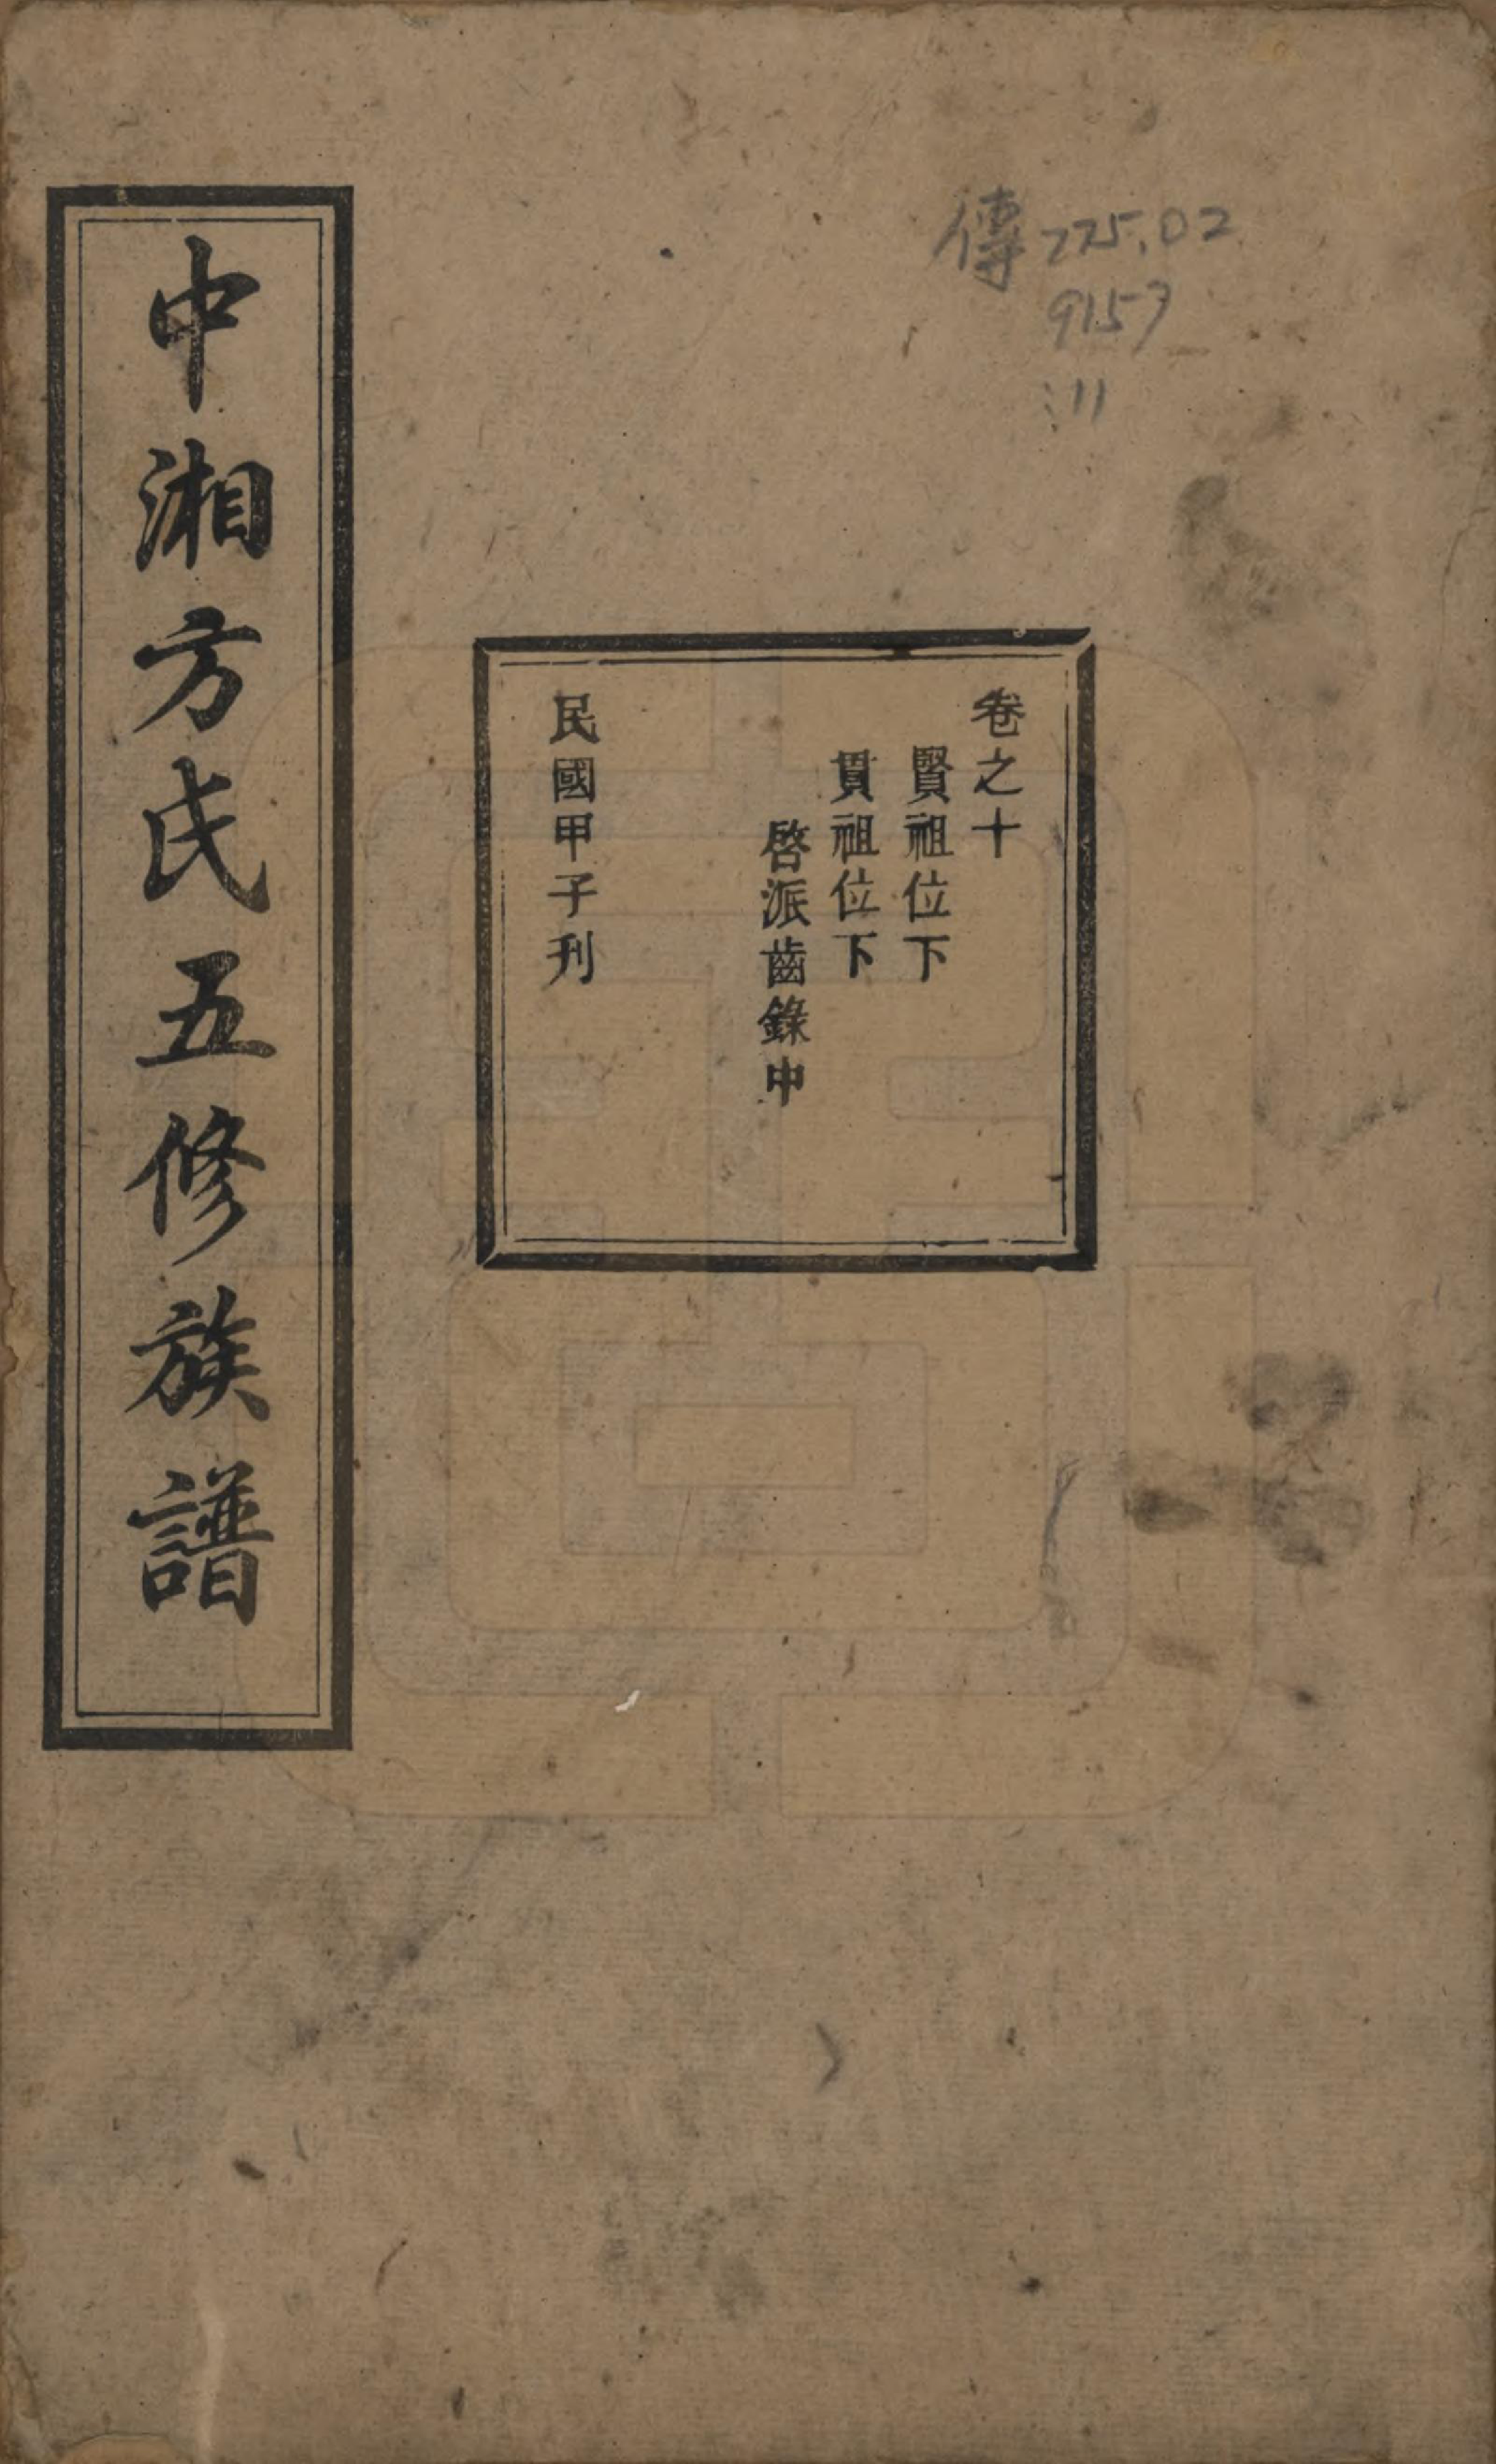 傳 275.02
9153
:11
卷之十
賢祖位下
貫祖位下
啓派齒錄中
民國甲子刋
中湘方氏五修族譜